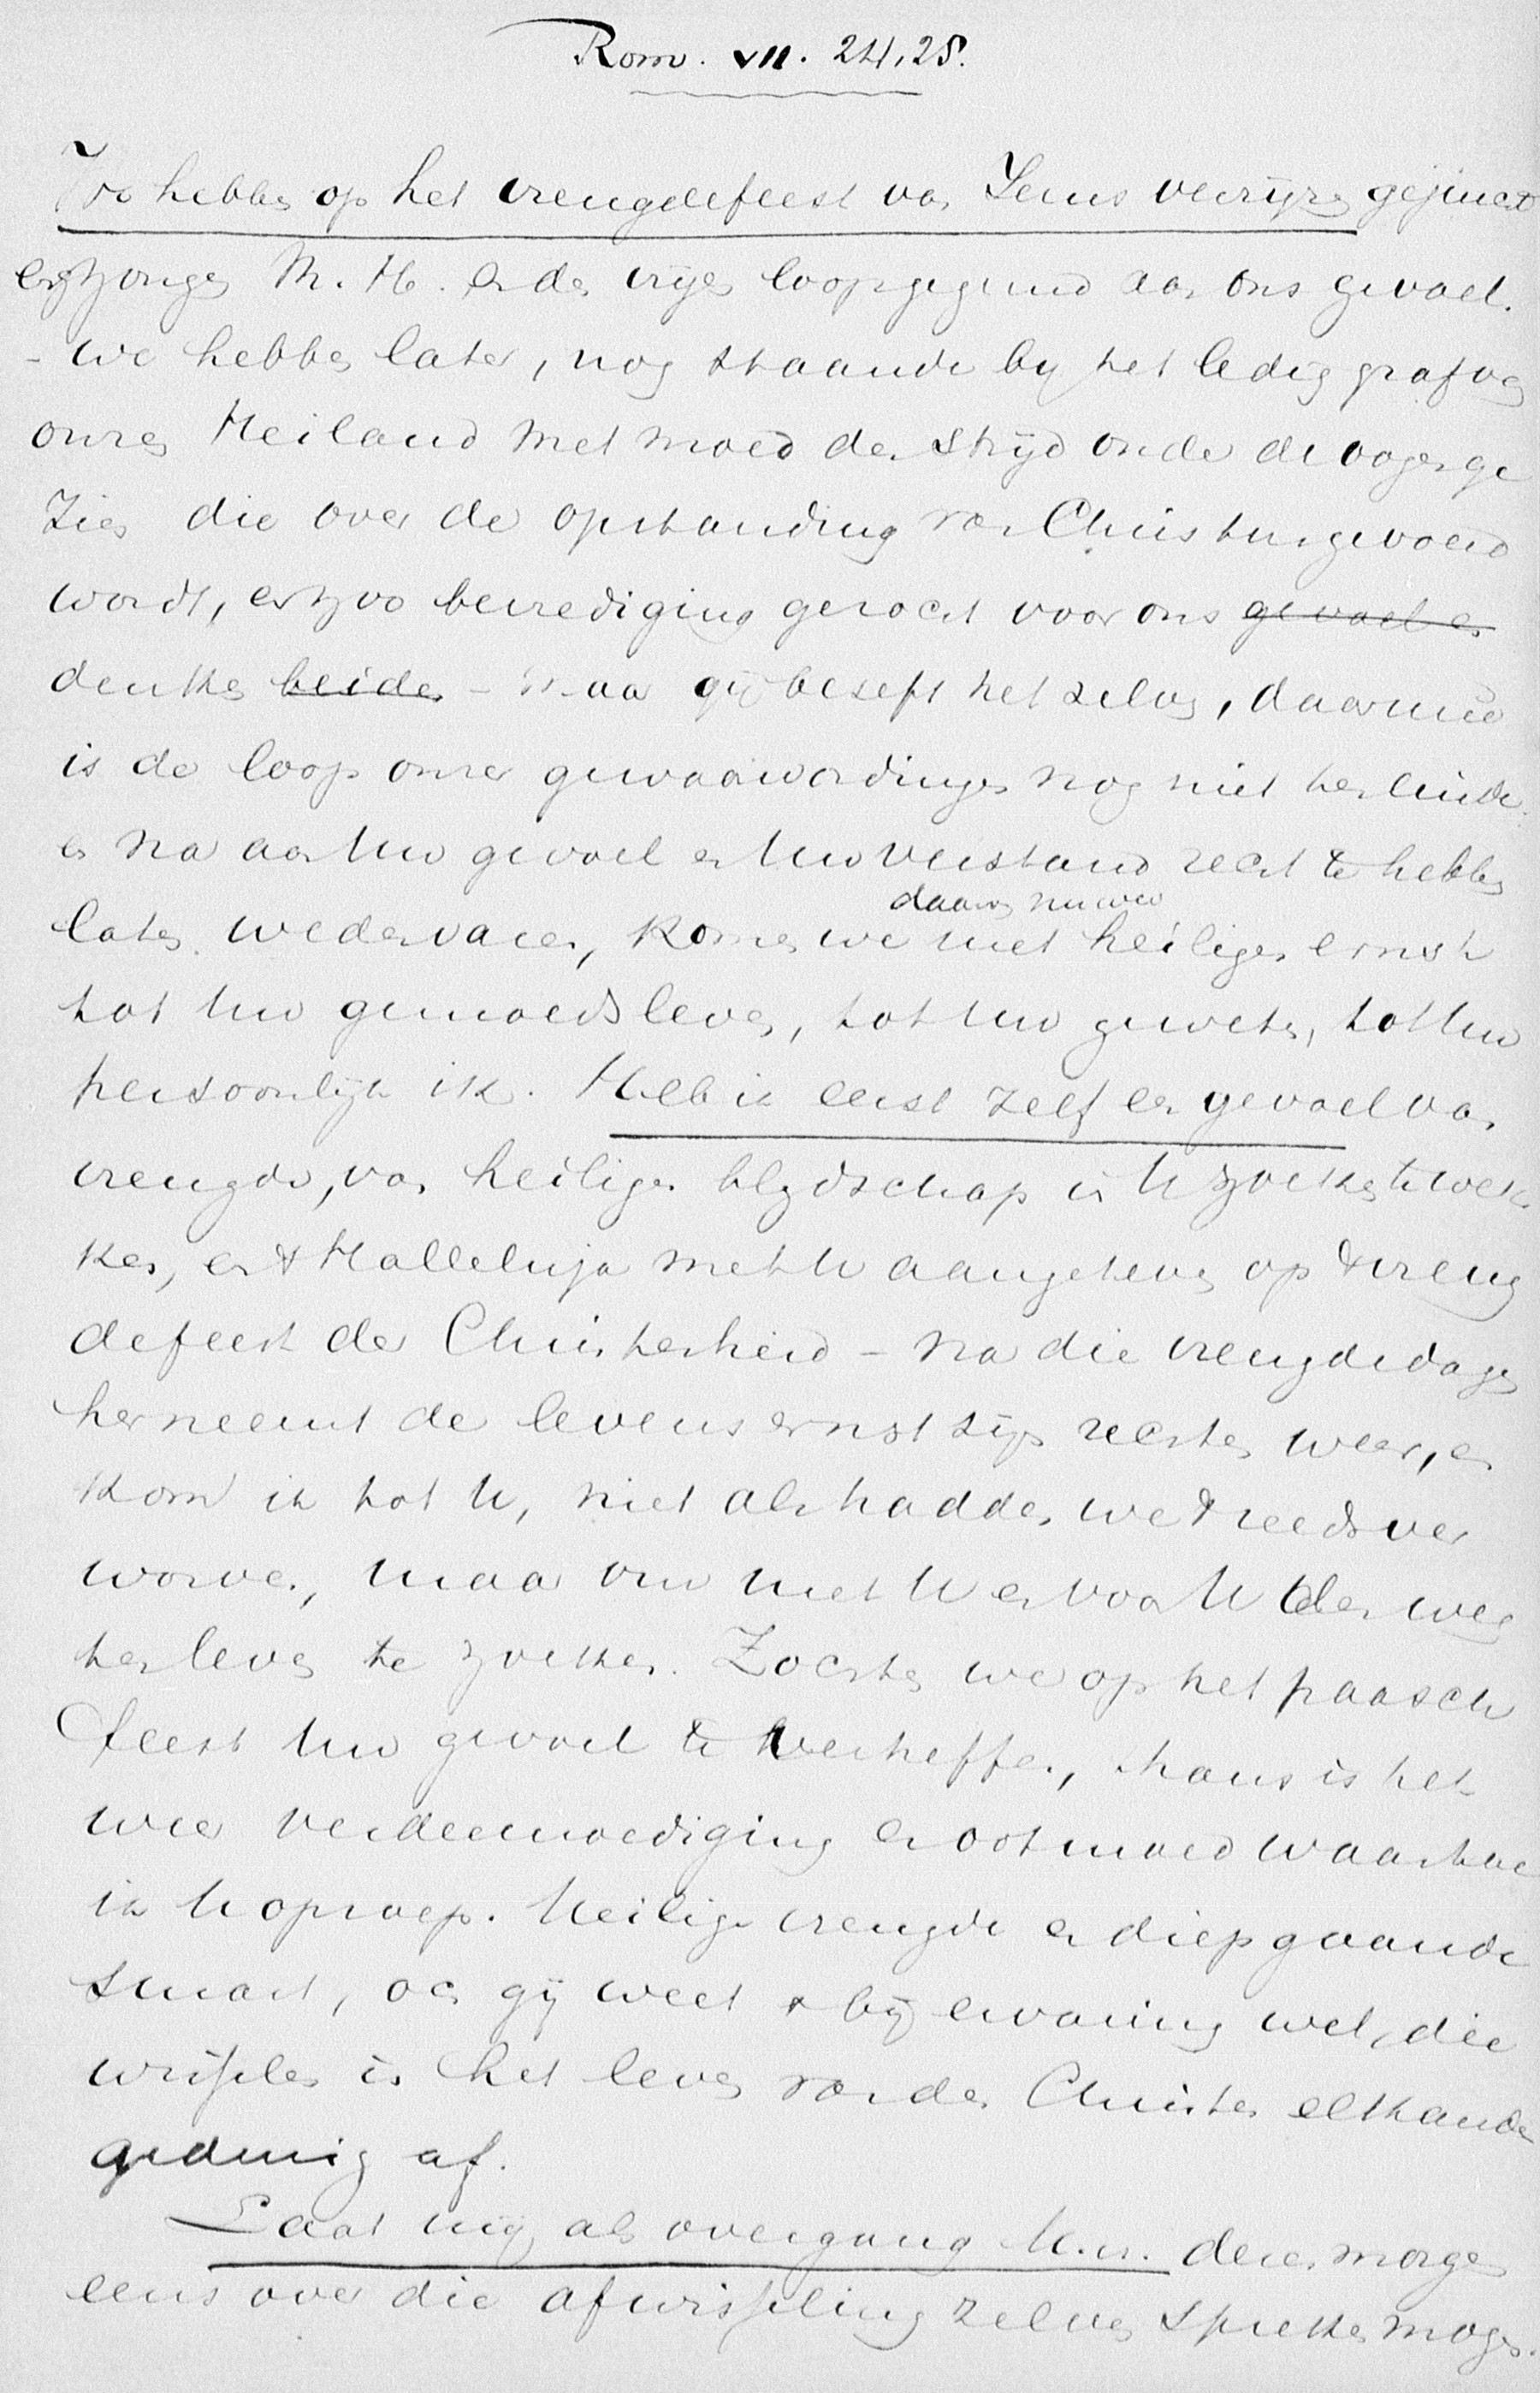 Rom. VII. 24, 25.
We hebben op het vreugdefeest van Jezus verrijzen gejuicht
en gezongen M. H. en den vrijen loop gegund aan ons gevoel.
- we hebben later, nog staande by het ledig graf van
onzen Heiland met moed den strijd onder de oogen ge
zien die over de opstanding van Christus gevoerd
wordt, en zoo bevrediging gezocht voor ons gevoel en
denken beiden - maar gij beseft het zelven, daarmeê
is de loop onzer gewaarwordingen nog niet ten einde.
en na aan Uw gevoel en Uw verstand recht te hebben
daarom nu weer
laten wedervaren, komen we met heiligen ernst
tot Uw gemoedsleven, tot Uw geweten, tot Uw
persoonlijk ik. Heb ik eerst zelf en gevoel van
vreugde, van heilige blydschap in U zoeken te wek
ken, en 't Halleluja met U aangeheven op 't vreug
defeest der Christenheid - na die vreugdedagen
herneemt de levensernst zijn rechten weer, en
kom ik tot U, niet als hadden we 't reeds ver
worven, maar om met U en voor U den weg
ten leven te zoeken. Zochten we op het paasch
feest Uw gevoel te verheffen, thans is het
weer verdeemoediging en ootmoed waartoe
ik U oproep. Heilige vreugde en diepgaande
smart, och gij weet 't bij ervaring wel, die
wisselen in het leven van den Christen elkander
gedurig af.
Laat mij als overgang U.w. dezen morgen
eens over die afwisseling zelven spreken mogen.